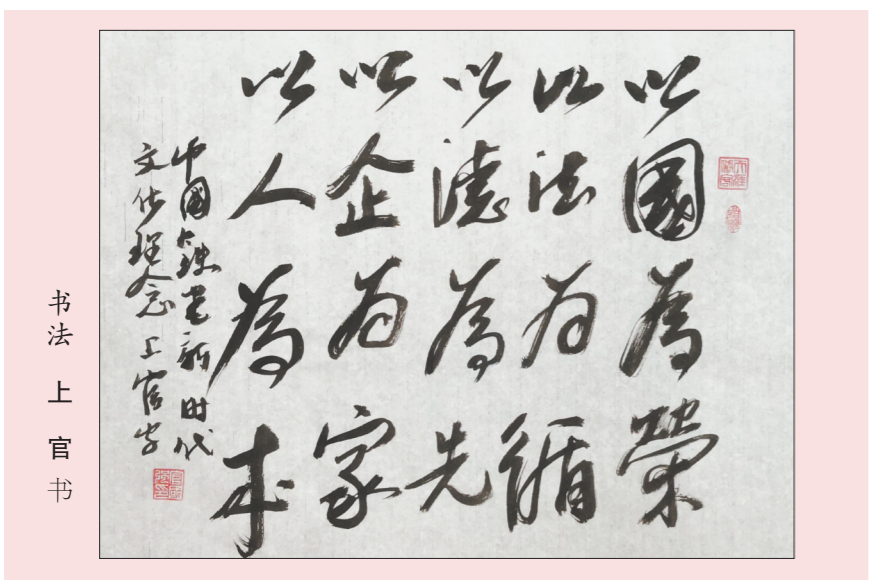 以國為榮
以法为循
以德為先
以企为家
以人為本
中國 新时代
文化理念 上官
书法 上官书